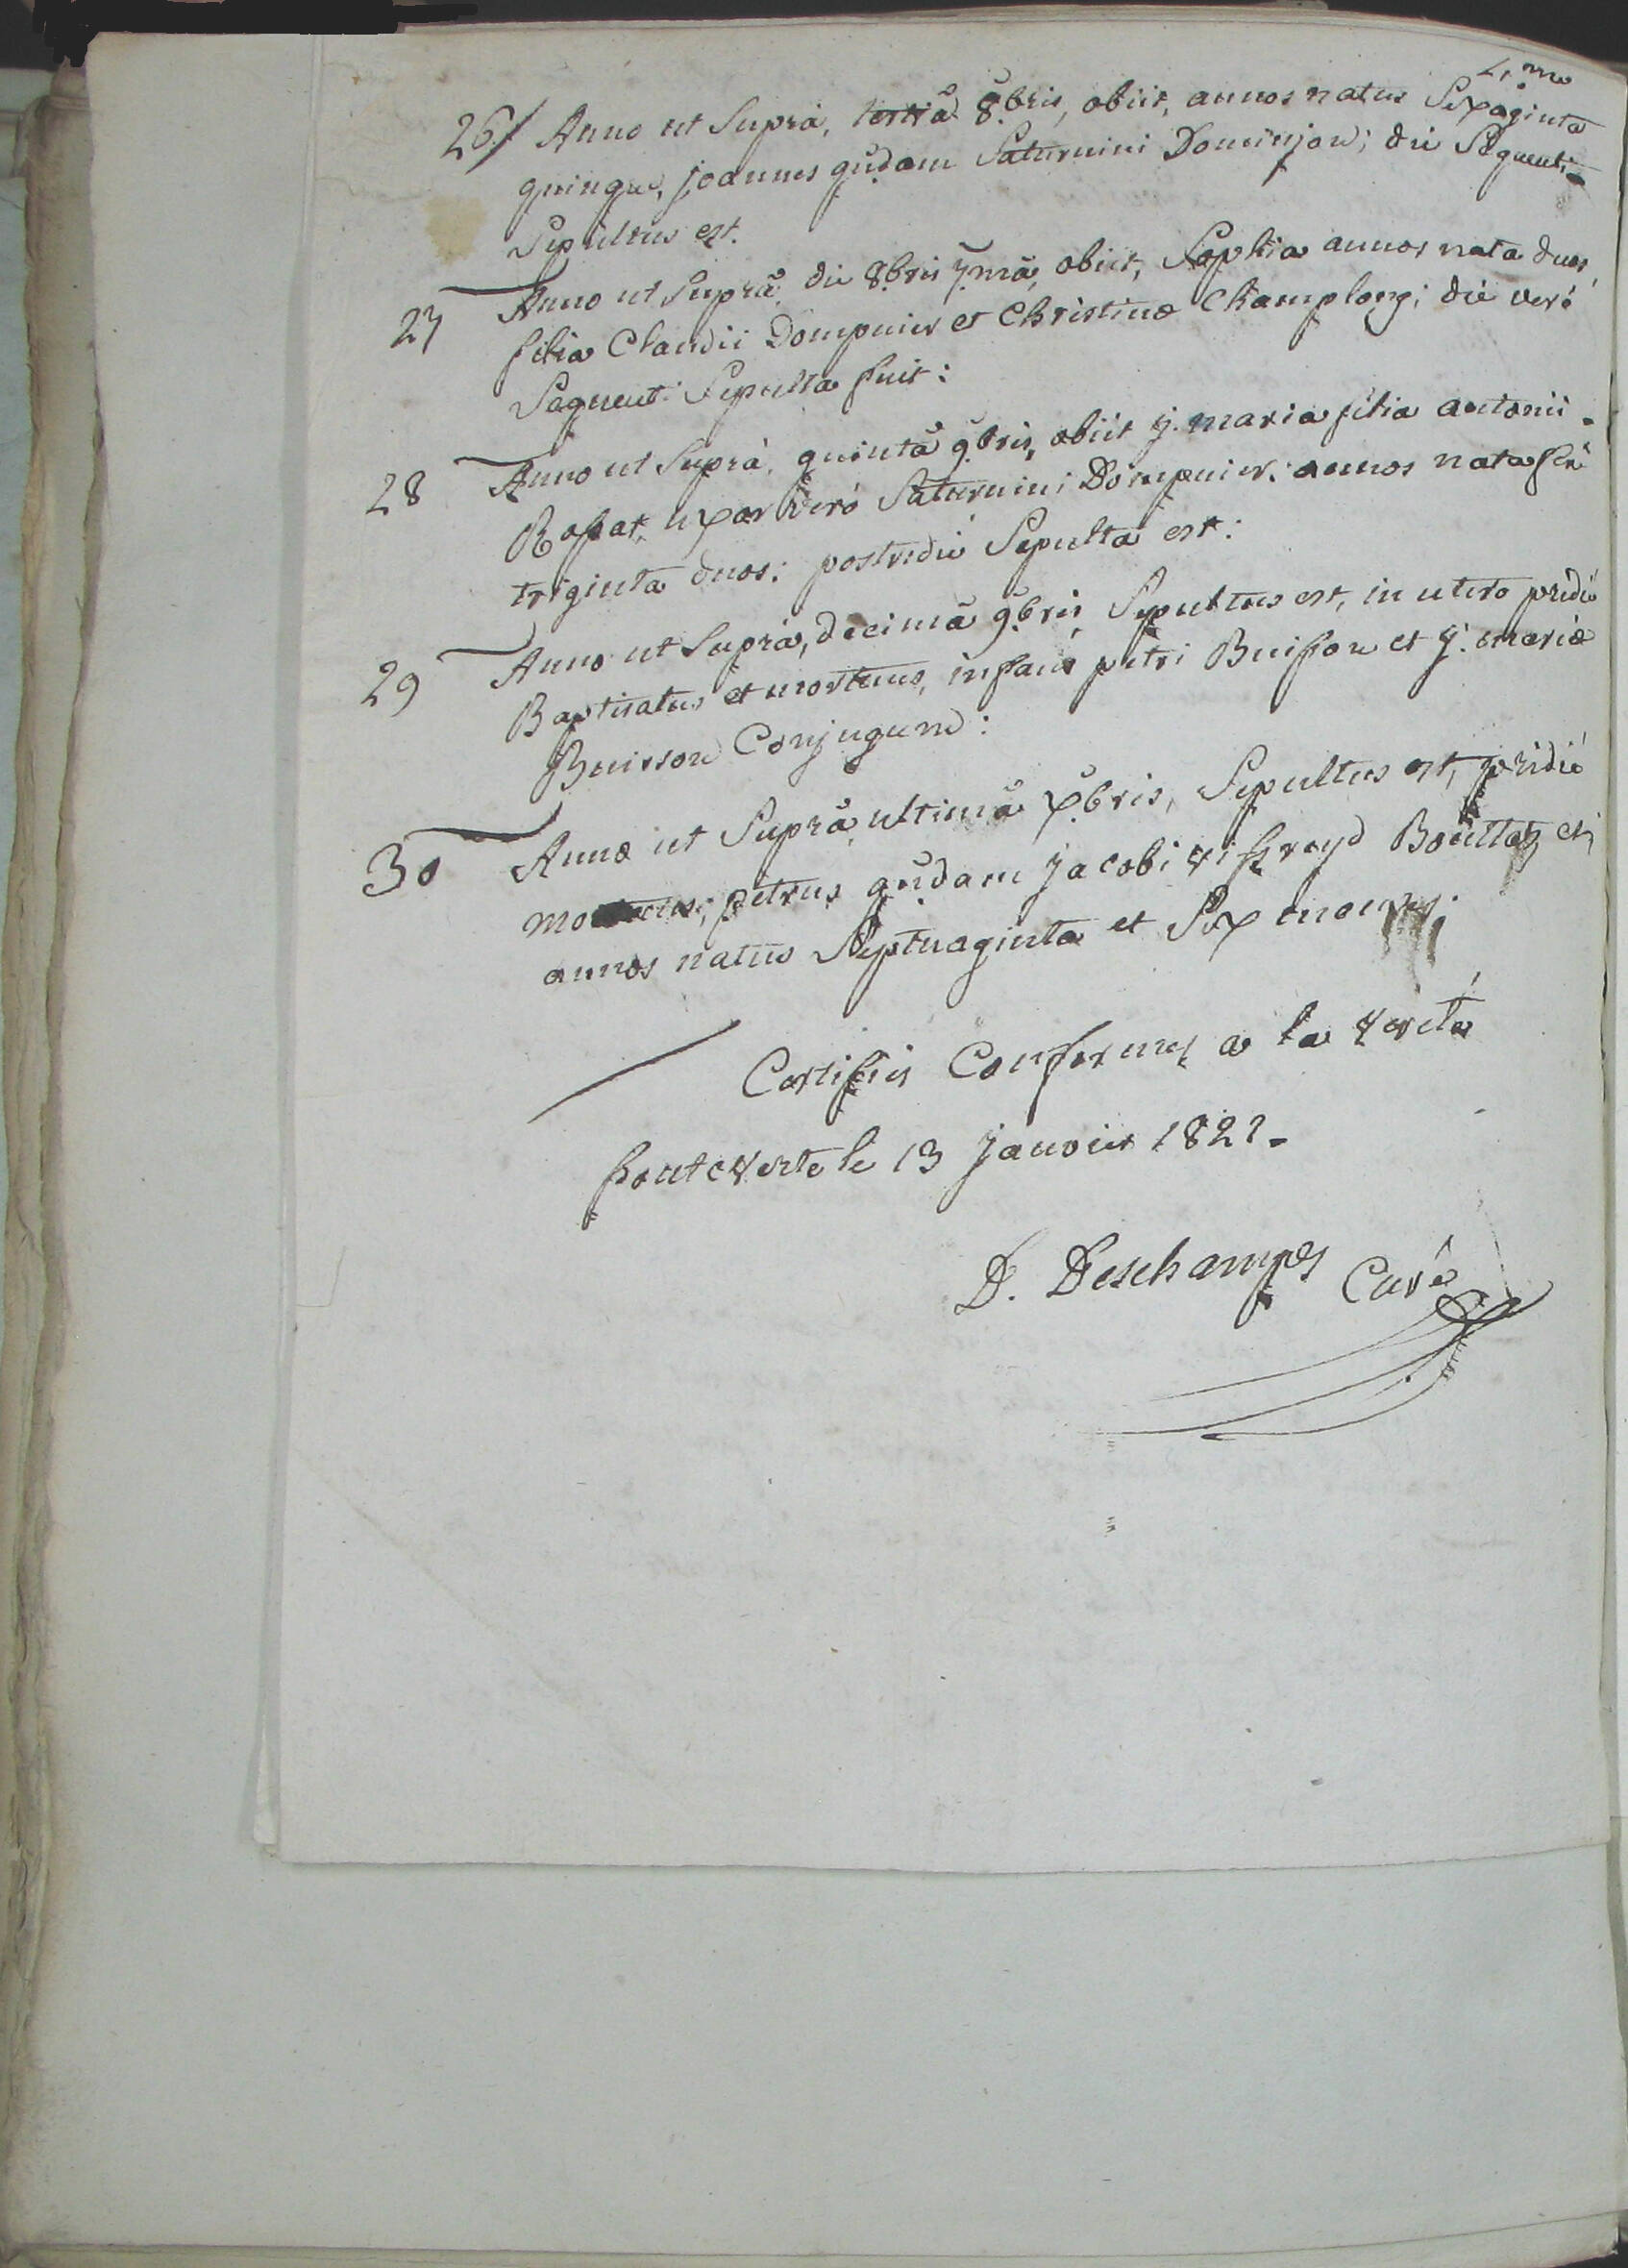 26./ Anno ut Suprà, tertiâ 8bris, obiit, annos natus Sexaginta
quinque, joannes qũdam Saturnini Dominjon; die Sequenti
Sepultus est.
27 Anno ut Suprà, die 8bris 7.mâ, obiit, Sophia annos nata duos,
filia Claudii Dompnier et Christinæ Champlong; die verò
Sequenti Sepulta fuit:
28 Anno ut Suprà, quintâ 9bris, obiit j. maria filia antonii
Rossat, uxor verò Saturnini Dompnier: annos nata ferè
triginta duos: postridiè Sepulta est:
29 Anno ut Suprà, decimâ 9bris Sepultus est, in utero pridiè
Baptisatus et mortuus, infans petri Buisson et j. mariæ
Buisson Conjugum:
30 Anno ut Suprà, ultimâ xbris, Sepultus est, pridiè
mortuus, petrus qũdam jacobi Bouttaz
annos natus Septuaginta et Sex
Certifiés Conformes a la verité
fontcverte le 13 janvier 1822.
D. Deschamps Curé